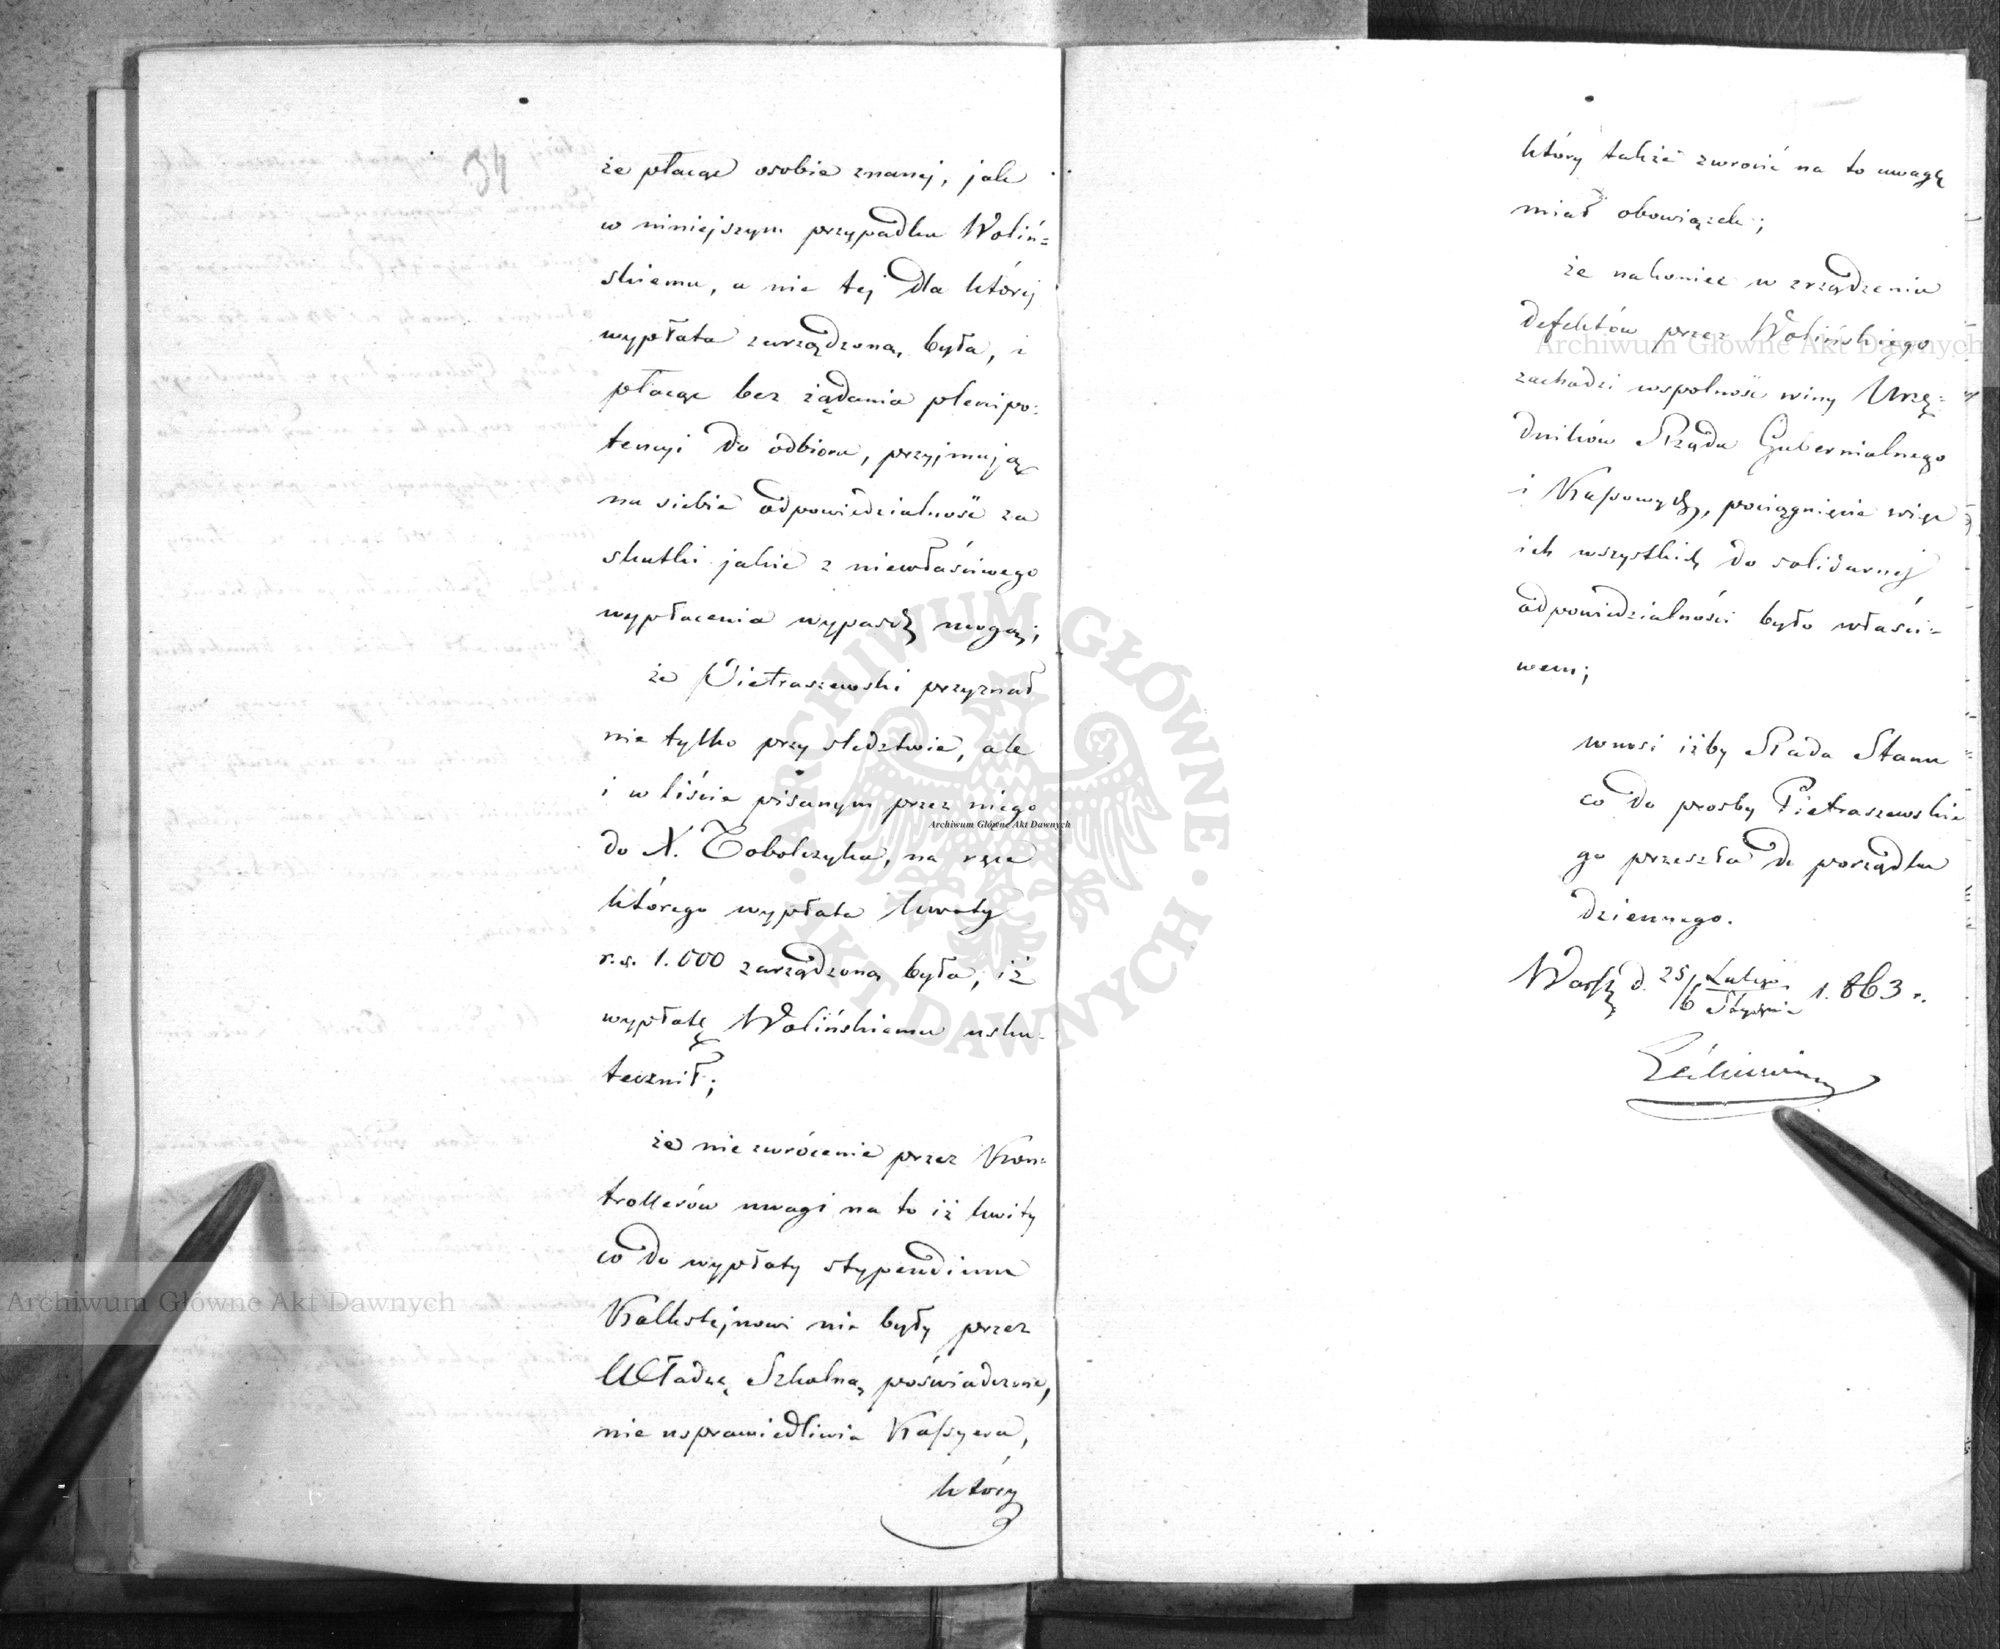 34
że płacąc osobie znanej, jak
w niniejszym przypadku Woliń=
skiemu, a nie tej dla której
wypłata zarządzoną była, i
płacąc bez żądania plenipo=
tencyi do odbioru, przyjmują
na siebie odpowiedzialność za
skutki jakie z niewłaściwego
wypłacenia wypaść mogą;
że Pietraszewski przyznał
nie tylko przy śledztwie, ale
i w liście pisanym przez niego
do X. Tobolczyka, na ręce
którego wypłata kwoty
r.s. 1.000 zarządzoną była, iż
wypłatę Wolińskiemu usku=
tecznił;
że nie zwrócenie przez Kon=
trollerów uwagi na to iż kwity
co do wypłaty stypendium
Kalkstejnowi nie były przez
Władzę Szkolną poświadczone,
nie usprawiedliwia Kassyera,
który
który także zwrócić na to uwagę
miał obowiązek;
że nakoniec w zrządzeniu
defektów przez Wolińskiego
zachodzi wspólność winy Urzę=
dników Rządu Gubernialnego
i Kassowych, pociągnięcie więc
ich wszystkich do solidarnej
odpowiedzialności było właści=
wem;
wnosi iżby Rada Stanu
co do prośby Pietraszewskie
go przeszła do porządku
dziennego.
Warsz. d. 25/6 Lutego 1.863 r.
Archiwum Główne Akt Dawnych
Archiwum Główne Akt Dawnych
Archiwum Główne Akt Dawnych
· ARCHIWUM GŁÓWNE · AKT DAWNYCH